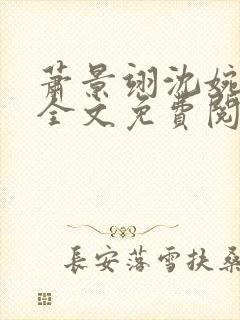 蕭景翊沈婉
全文免費閱
長安落雪扶桑